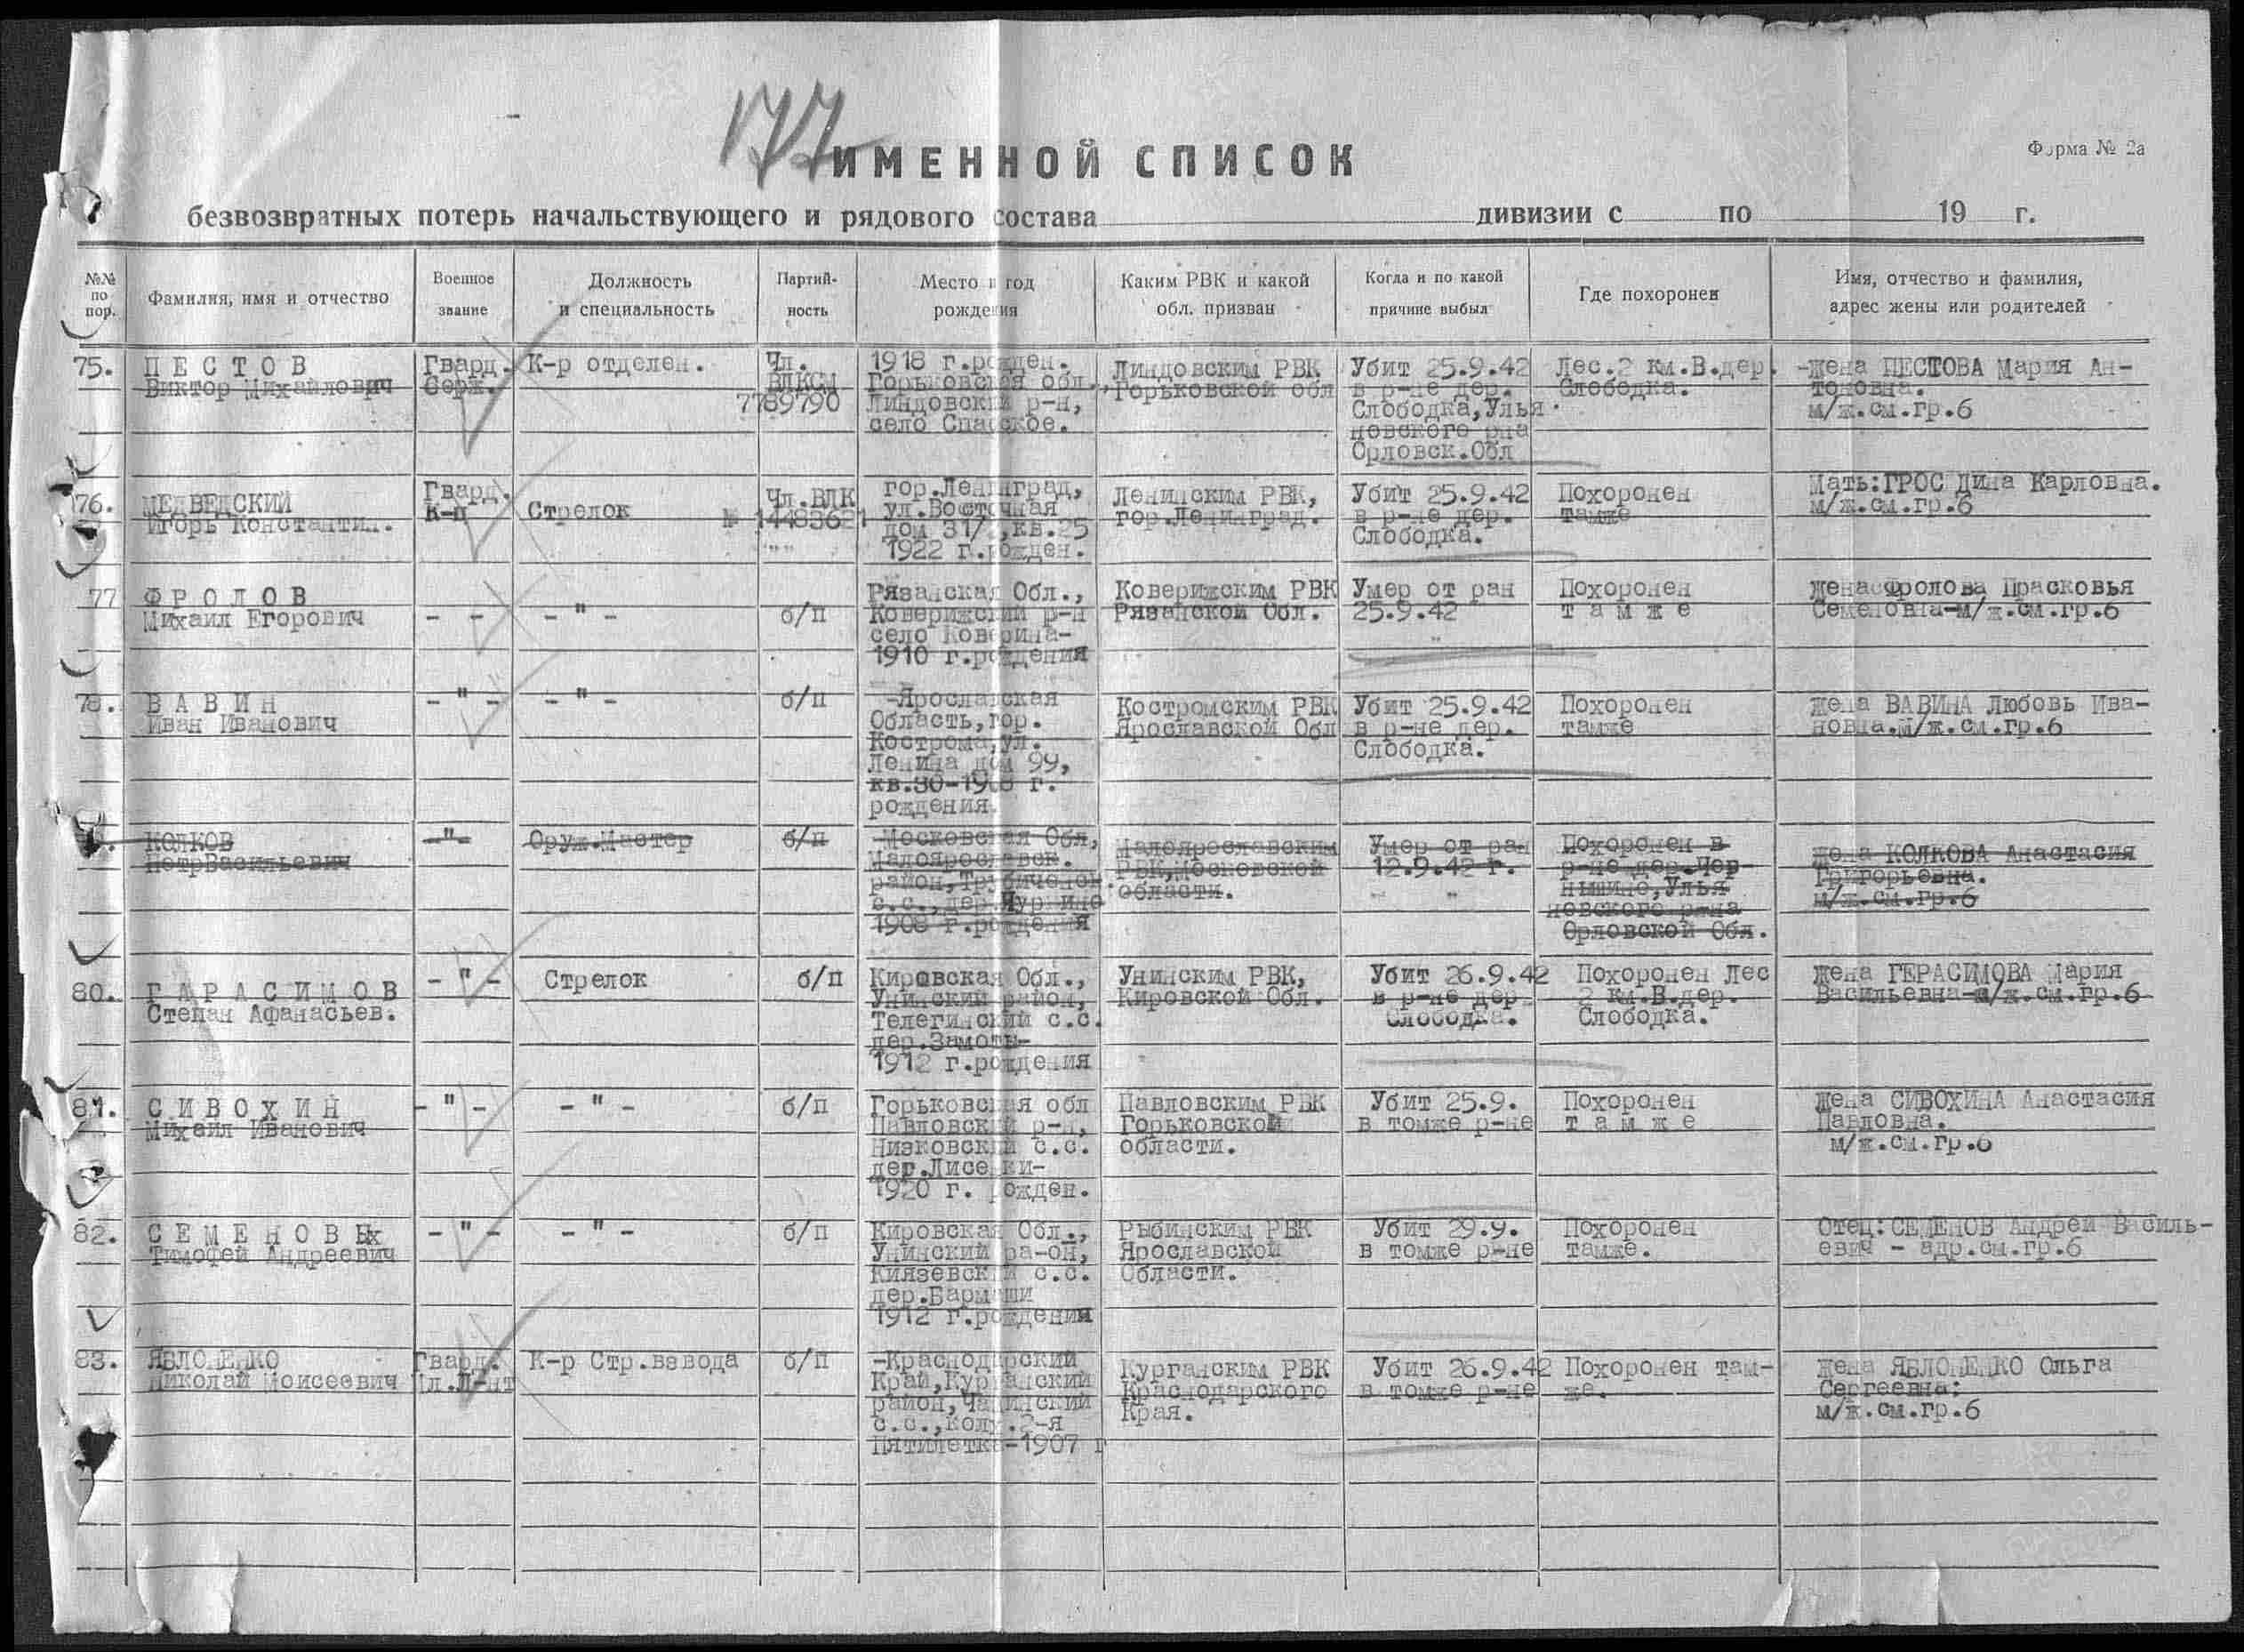 177
ИМЕННОЙ СПИСОК
Форма № 2а
безвозвратных потерь начальствующего и рядового состава дивизии с по 19 г.
№№ по пор.
Фамилия, имя и отчество
Военное звание
Должность и специальность
Партий-ность
Место и год рождения
Каким РВК и какой обл. призван
Когда и по какой причине выбыл
Где похоронен
Имя, отчество и фамилия, адрес жены или родителей
75.
ПЕСТОВ
Виктор Михайлович
Гвард.
Серж.
К-р отделен.
Чл.
ВЛКСМ
7789790
1918 г.рожден.
Горьковская обл.,
Линдовский р-н,
село Спасское.
Линдовским РВК
Горьковской обл
Убит 25.9.42
в р-не дер.
Слободка,Улья
новского рна
Орловск.Обл
Лес.2 км.В.дер.
Слободка.
-жена ПЕСТОВА Мария Ан-
тоновна.
м/ж.см.гр.6
76.
МЕДВЕДСКИЙ
Игорь Константин.
Гвард.
К-ц
Стрелок
Чл.ВЛК
№ 14483621
гор.Ленинград,
ул.Восточная
дом 31/ ,кв.25
1922 г.рожден.
Ленинским РВК,
гор.Ленинград.
Убит 25.9.42
в р-не дер.
Слободка.
Похоронен
тамже
Мать:ГРОС Дина Карловна.
м/ж.см.гр.6
77
ФРОЛОВ
Михаил Егорович
- -
-"-
б/п
Рязанская Обл.,
Коверижский р-н
село Коверина-
1910 г.рождения
Коверижским РВК
Рязанской Обл.
Умер от ран
25.9.42
Похоронен
тамже
Фролова Прасковья
Семеновна-м/ж.см.гр.6
78.
ВАВИН
Иван Иванович
-"-
-"-
б/п
-Ярославская
Область,гор.
Кострома,ул.
Ленина дом 99,
кв.30- г.
рождения.
Костромским РВК
Ярославской Обл
Убит 25.9.42
в р-не дер.
Слободка.
Похоронен
тамже
жена ВАВИНА Любовь Ива-
новна.м/ж.см.гр.6
КОЛКОВ
ПетрВасильевич
-"-
Оруж.Мастер
б/п
-Московская Обл,
Малоярославск.
район,
с.с.,дер.
1908 г.рождения
Малоярославским
РВК,Московской
области.
Умер от ран
12.9.42 г.
Похоронен в
р-не дер.Чер-
нышино,Улья
новского р-на
Орловской Обл.
жена КОЛКОВА Анастасия
Григорьевна.
м/ж.см.гр.6
80.
ГАРАСИМОВ
Степан Афанасьев.
-"-
Стрелок
б/п
Кировская Обл.,
Унинский район,
Телегинский с.с.
дер.
1912 г.рождения
Унинским РВК,
Кировской Обл.
Убит 26.9.42
в р-не дер.
Слободка.
Похоронен Лес
2 км.В.дер.
Слободка.
жена ГЕРАСИМОВА Мария
Васильевна-м/ж.см.гр.6
81.
СИВОХИН
Михаил Иванович
-"-
-"-
б/п
Горьковская обл
Павловский р-н,
Низковский с.с.
дер.Лисенки-
1920 г. рожден.
Павловским РВК
Горьковской
области.
Убит 25.9.
в томже р-не
Похоронен
тамже
жена СИВОХИНА Анастасия
Павловна.
м/ж.см.гр.6
82.
СЕМЕНОВЫх
Тимофей Андреевич
-"-
-"-
б/п
Кировская Обл.,
Унинский ра-он,
Князевский с.с.
дер.
1912 г.рождения
Рыбинским РВК
Ярославской
Области.
Убит 29.9.
в томже р-не
Похоронен
тамже.
Отец:СЕМЕНОВ Андрей Василь-
евич - адр.см.гр.6
83.
ЯБЛОНЕНКО
Николай Моисеевич
Гвард.
Мл.Л-нт
К-р Стр.взвода
б/п
-Краснодарский
Край,Курганский
район,
с.с.,колх.2-я
Пятилетка-1907 г
Курганским РВК
Краснодарского
Края.
Убит 26.9.42
в томже р-не
Похоронен там-
же.
жена ЯБЛОНЕНКО Ольга
Сергеевна:
м/ж.см.гр.6